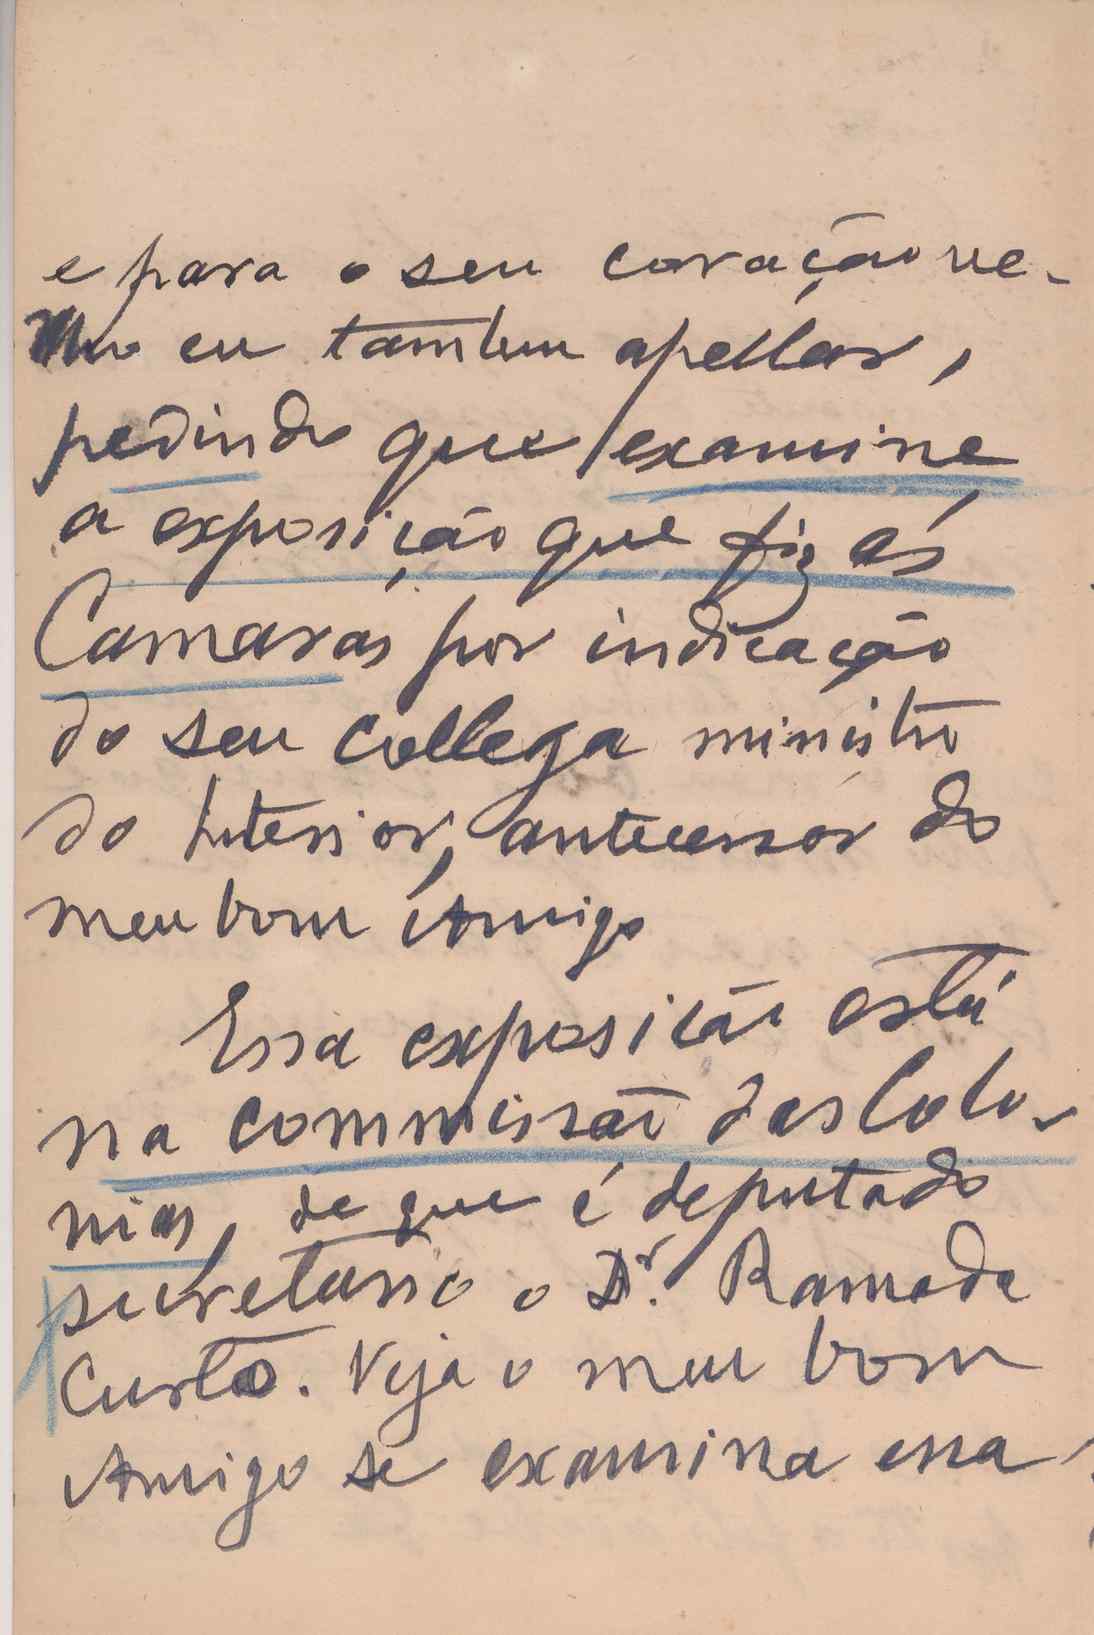 e para o seu coração ve-
nho eu tambem apellar,
pedindo que examine
a exposição que fiz ás
Camaras por indicação
do seu collega ministro
do Interior, antecessor do
meu bom Amigo
Essa exposição está
na commissão das Colo-
nias, de que é deputado
secretario o Dr. Ramada
Curto. Veja o meu bom
Amigo se examina essa